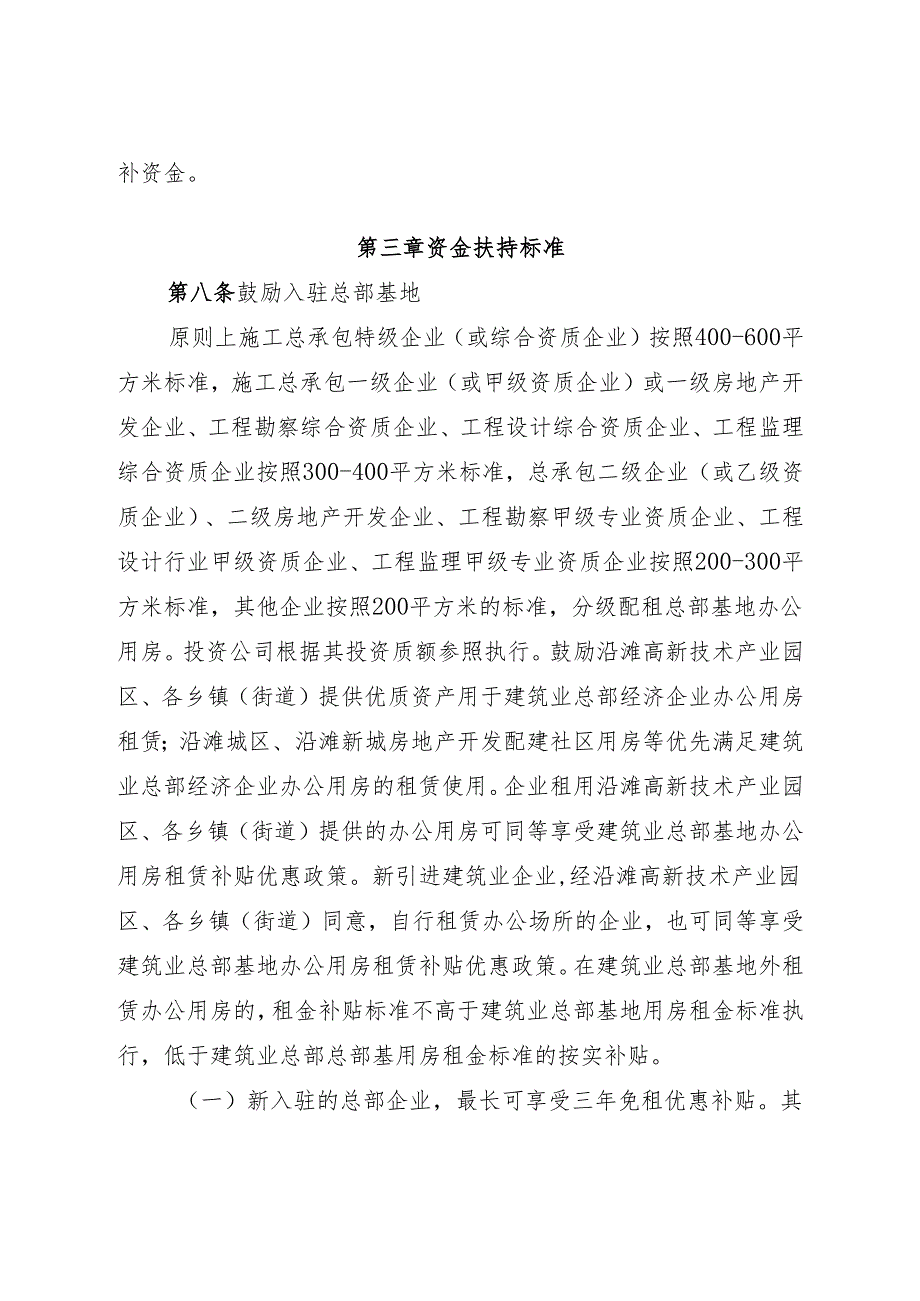 补资金。
第三章资金扶持标准
第八条鼓励入驻总部基地
原则上施工总承包特级企业（或综合资质企业）按照400-600平
方米标准，施工总承包一级企业（或甲级资质企业）或一级房地产开
发企业、工程勘察综合资质企业、工程设计综合资质企业、工程监理
综合资质企业按照300-400平方米标准，总承包二级企业（或乙级资
质企业）、二级房地产开发企业、工程勘察甲级专业资质企业、工程
设计行业甲级资质企业、工程监理甲级专业资质企业按照200-300平
方米标准，其他企业按照200平方米的标准，分级配租总部基地办公
用房。投资公司根据其投资质额参照执行。鼓励沿滩高新技术产业园
区、各乡镇（街道）提供优质资产用于建筑业总部经济企业办公用房
租赁；沿滩城区、沿滩新城房地产开发配建社区用房等优先满足建筑
业总部经济企业办公用房的租赁使用。企业租用沿滩高新技术产业园
区、各乡镇（街道）提供的办公用房可同等享受建筑业总部基地办公
用房租赁补贴优惠政策。新引进建筑业企业,经沿滩高新技术产业园
区、各乡镇（街道）同意，自行租赁办公场所的企业，也可同等享受
建筑业总部基地办公用房租赁补贴优惠政策。在建筑业总部基地外租
赁办公用房的，租金补贴标准不高于建筑业总部基地用房租金标准执
行，低于建筑业总部总部基用房租金标准的按实补贴。
（一）新入驻的总部企业，最长可享受三年免租优惠补贴。其